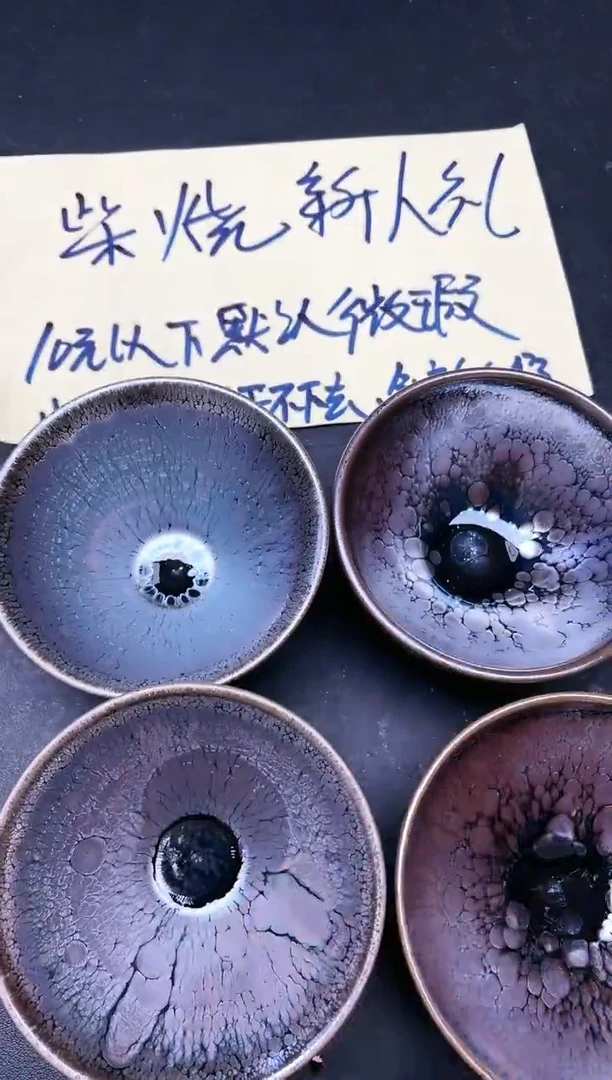 柴烧新人礼
10元以下默认微瑕
不下去